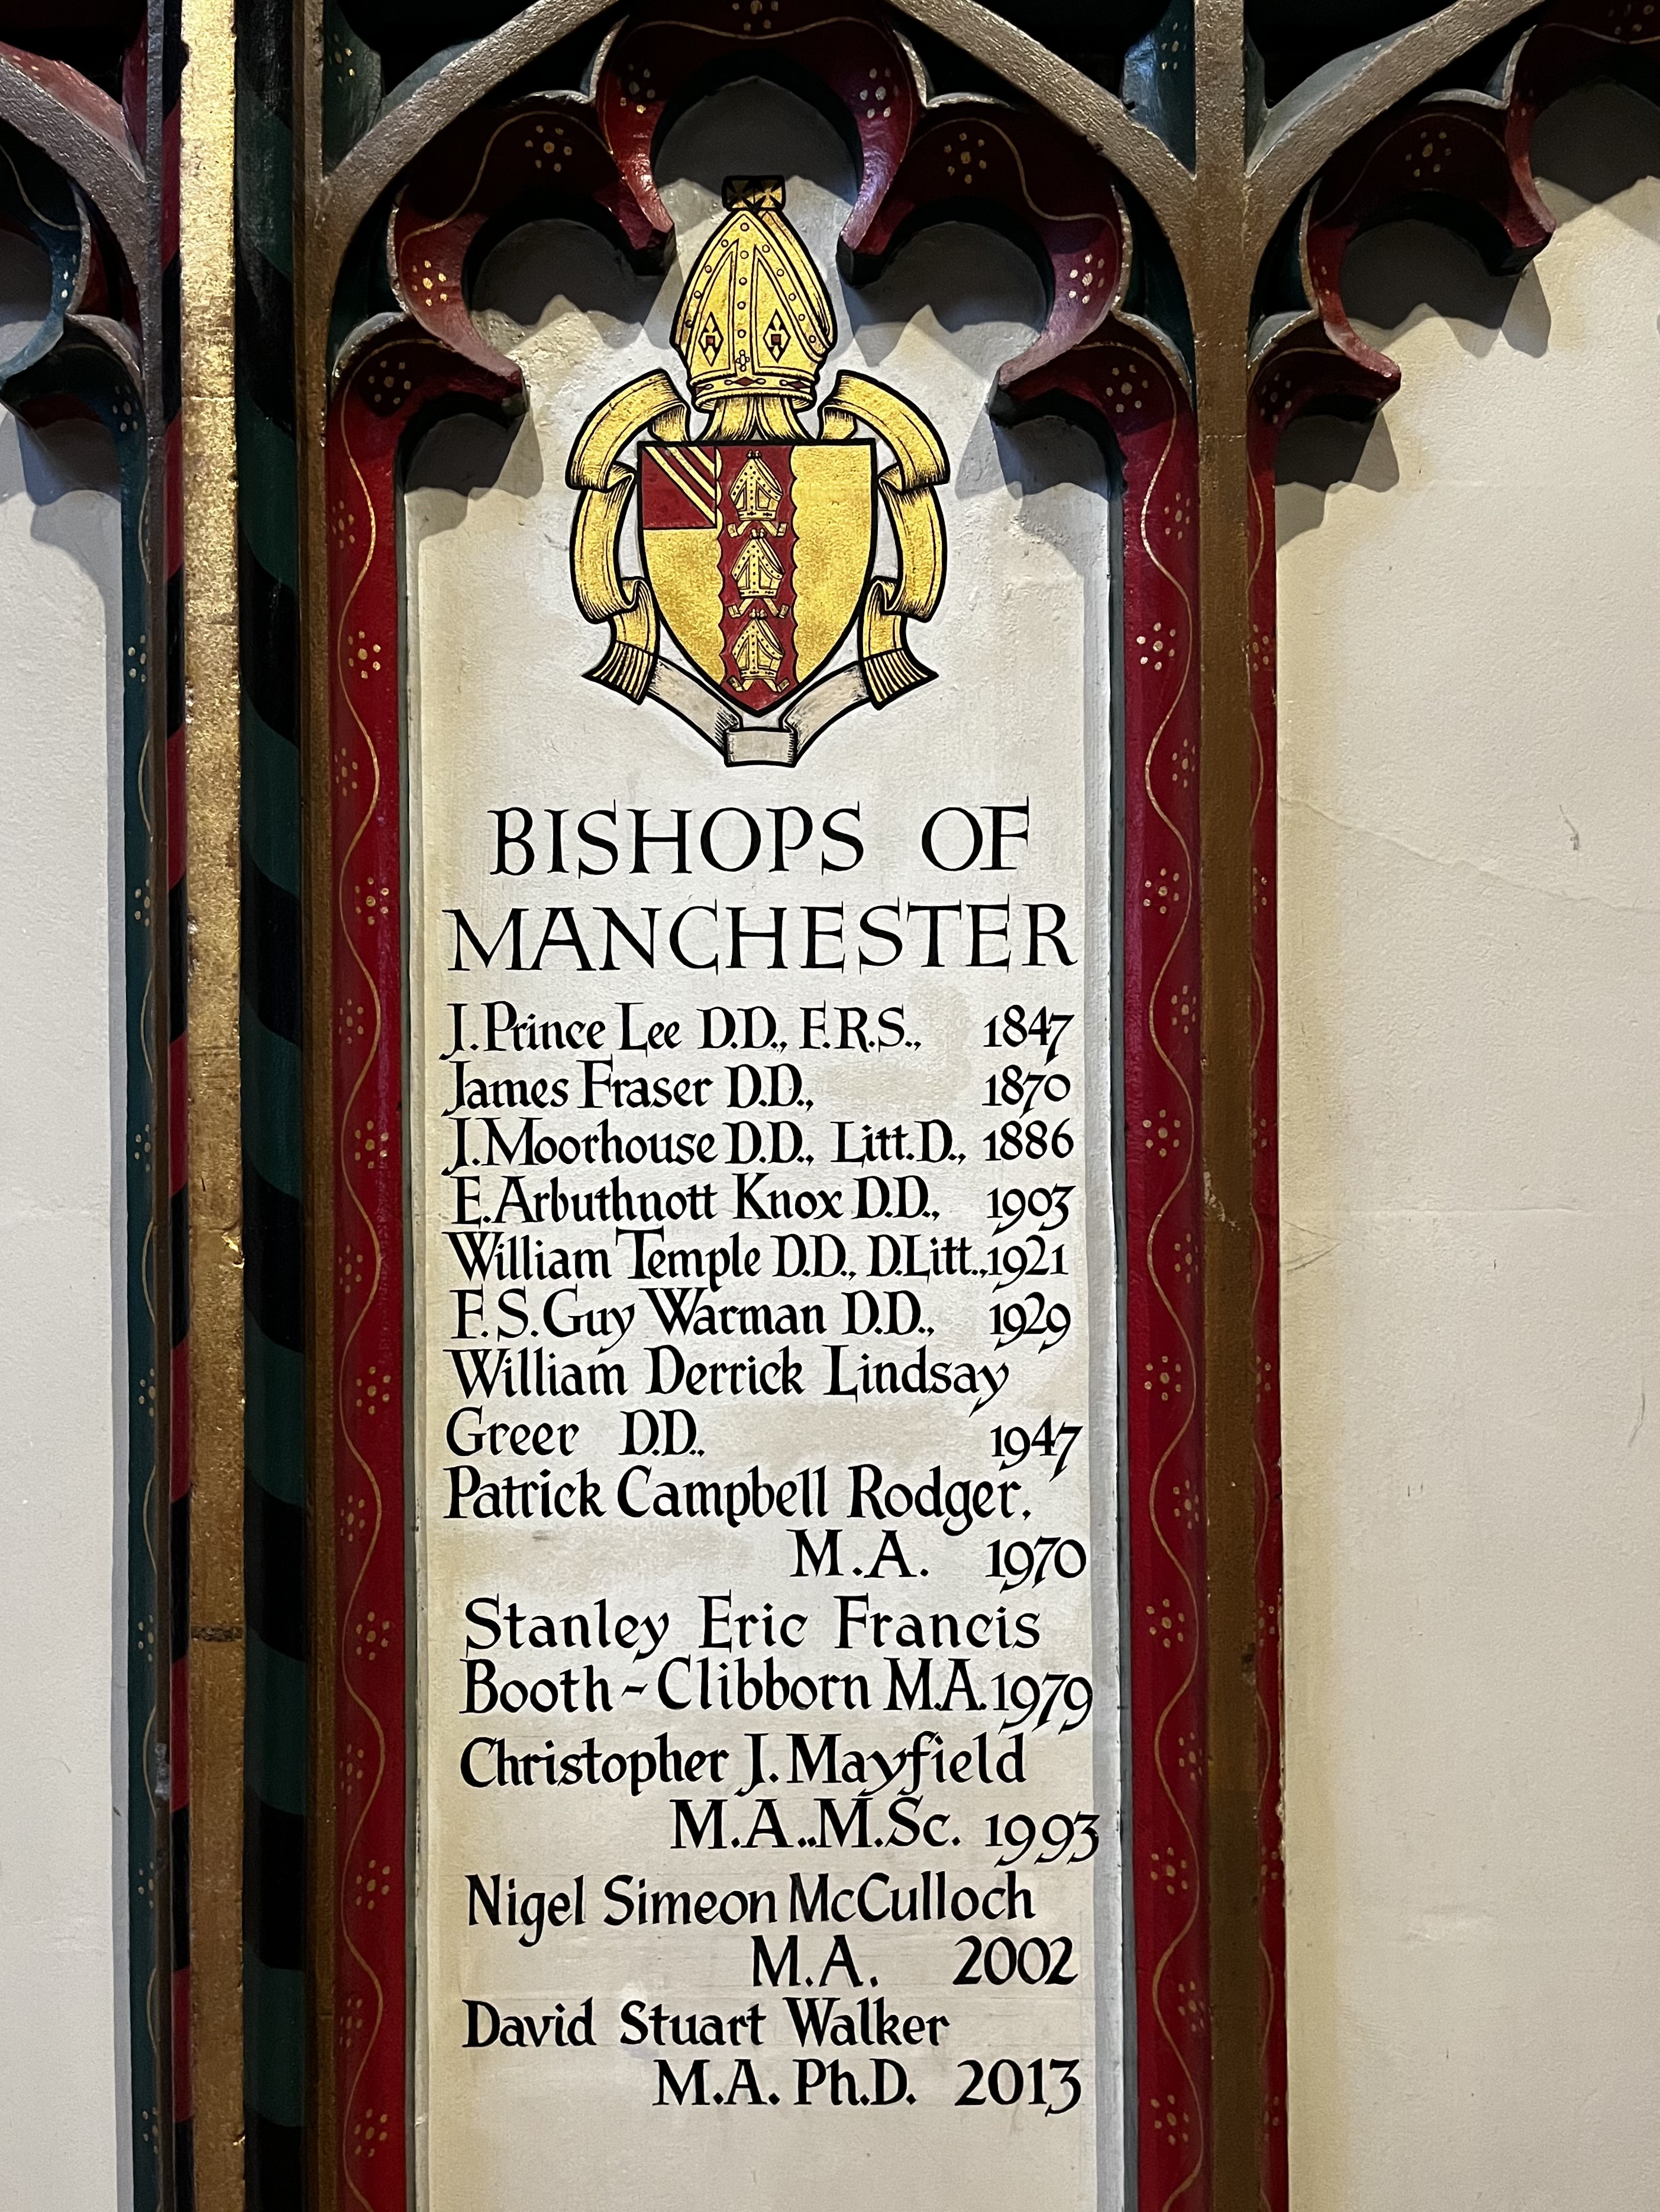 BISHOPS OF
MANCHESTER
J. Prince Lee D.D., F.R.S., 1847
James Fraser D.D., 1870
J. Moorhouse D.D., Litt.D., 1886
E. Arbuthnott Knox D.D., 1903
William Temple D.D., D.Litt., 1921
F. S. Guy Warman D.D., 1929
William Derrick Lindsay
Greer D.D., 1947
Patrick Campbell Rodger,
M.A. 1970
Stanley Eric Francis
Booth-Clibborn M.A. 1979
Christopher J. Mayfield
M.A., M.Sc. 1993
Nigel Simeon McCulloch
M.A. 2002
David Stuart Walker
M.A. Ph.D. 2013